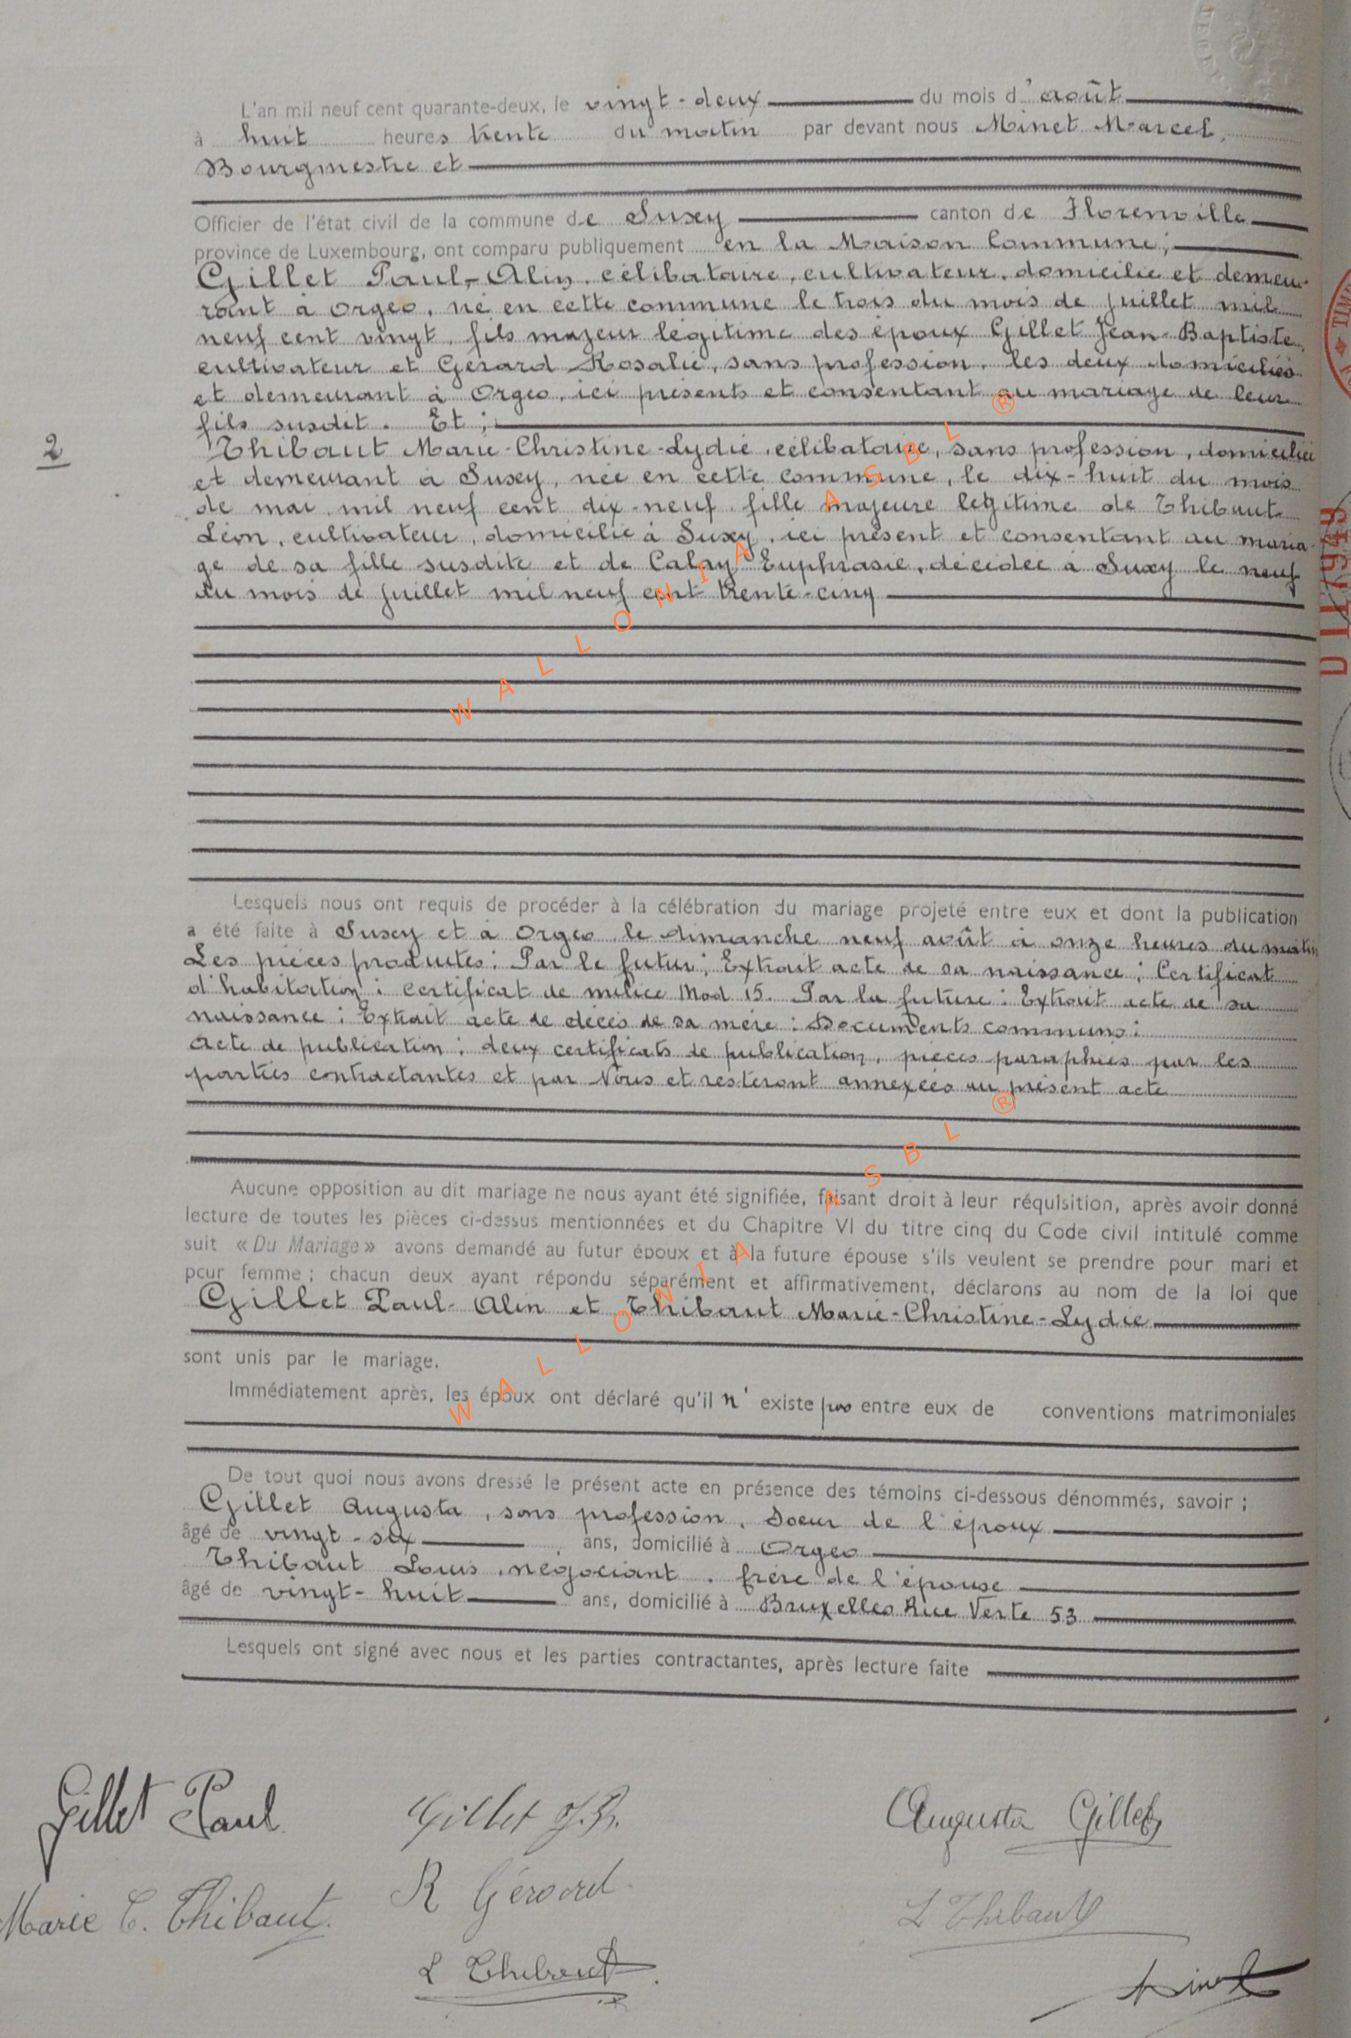 L'an mil neuf cent quarante-deux, le vingt-deux du mois d'août
à huit heures trente du matin par devant nous Minet Marcel,
Bourgmestre et
Officier de l'état civil de la commune de Suxy canton de Florenville
province de Luxembourg, ont comparu publiquement en la Maison Commune;
Gillet Paul-Alin, célibataire, cultivateur, domicilié et demeu-
rant à Orgeo, né en cette commune le trois du mois de juillet mil
neuf cent vingt, fils majeur légitime des époux Gillet Jean-Baptiste,
cultivateur et Gérard Rosalie, sans profession, les deux domiciliés
et demeurant à Orgeo, ici présents et consentant au mariage de leur
fils susdit. Et;
2
Thibaut Marie-Christine-Lydie, célibataire, sans profession, domiciliée
et demeurant à Suxy, née en cette commune, le dix-huit du mois
de mai mil neuf cent dix-neuf fille majeure légitime de Thibaut
Léon, cultivateur, domicilié à Suxy, ici présent et consentant au maria-
ge de sa fille susdite et de Calay Euphrasie, décédée à Suxy le neuf
du mois de juillet mil neuf cent trente-cinq
Lesquels nous ont requis de procéder à la célébration du mariage projeté entre eux et dont la publication
a été faite à Suxy et à Orgeo le dimanche neuf août à onze heures du matin
Les pièces produites: Par le futur: Extrait acte de sa naissance; Certificat
d'habitation; certificat de milice Mod 15. Par la future: Extrait acte de sa
naissance; Extrait acte de décès de sa mère: Documents communs:
Acte de publication; deux certificats de publication, pièces paraphées par les
parties contractantes et par Nous et resteront annexées au présent acte
Aucune opposition au dit mariage ne nous ayant été signifiée, faisant droit à leur réquisition, après avoir donné
lecture de toutes les pièces ci-dessus mentionnées et du Chapitre VI du titre cinq du Code civil intitulé comme
suit « Du Mariage » avons demandé au futur époux et à la future épouse s'ils veulent se prendre pour mari et
pour femme; chacun deux ayant répondu séparément et affirmativement, déclarons au nom de la loi que
Gillet Paul-Alin et Thibaut Marie-Christine-Lydie
sont unis par le mariage.
Immédiatement après, les époux ont déclaré qu'il n'existe pas entre eux de conventions matrimoniales
De tout quoi nous avons dressé le présent acte en présence des témoins ci-dessous dénommés, savoir;
Gillet Augusta, sans profession, Soeur de l'époux
âgé de vingt-six ans, domicilié à Orgeo
Thibaut Louis, négociant, frère de l'épouse
âgé de vingt-huit ans, domicilié à Bruxelles Rue Verte 53
Lesquels ont signé avec nous et les parties contractantes, après lecture faite
Gillet Paul Gillet J.B. Augusta Gillet
Marie C. Thibaut R Gérard L Thibaut
L Thibaut Minet
WALLONIA ASBL ®
WALLONIA ASBL ®